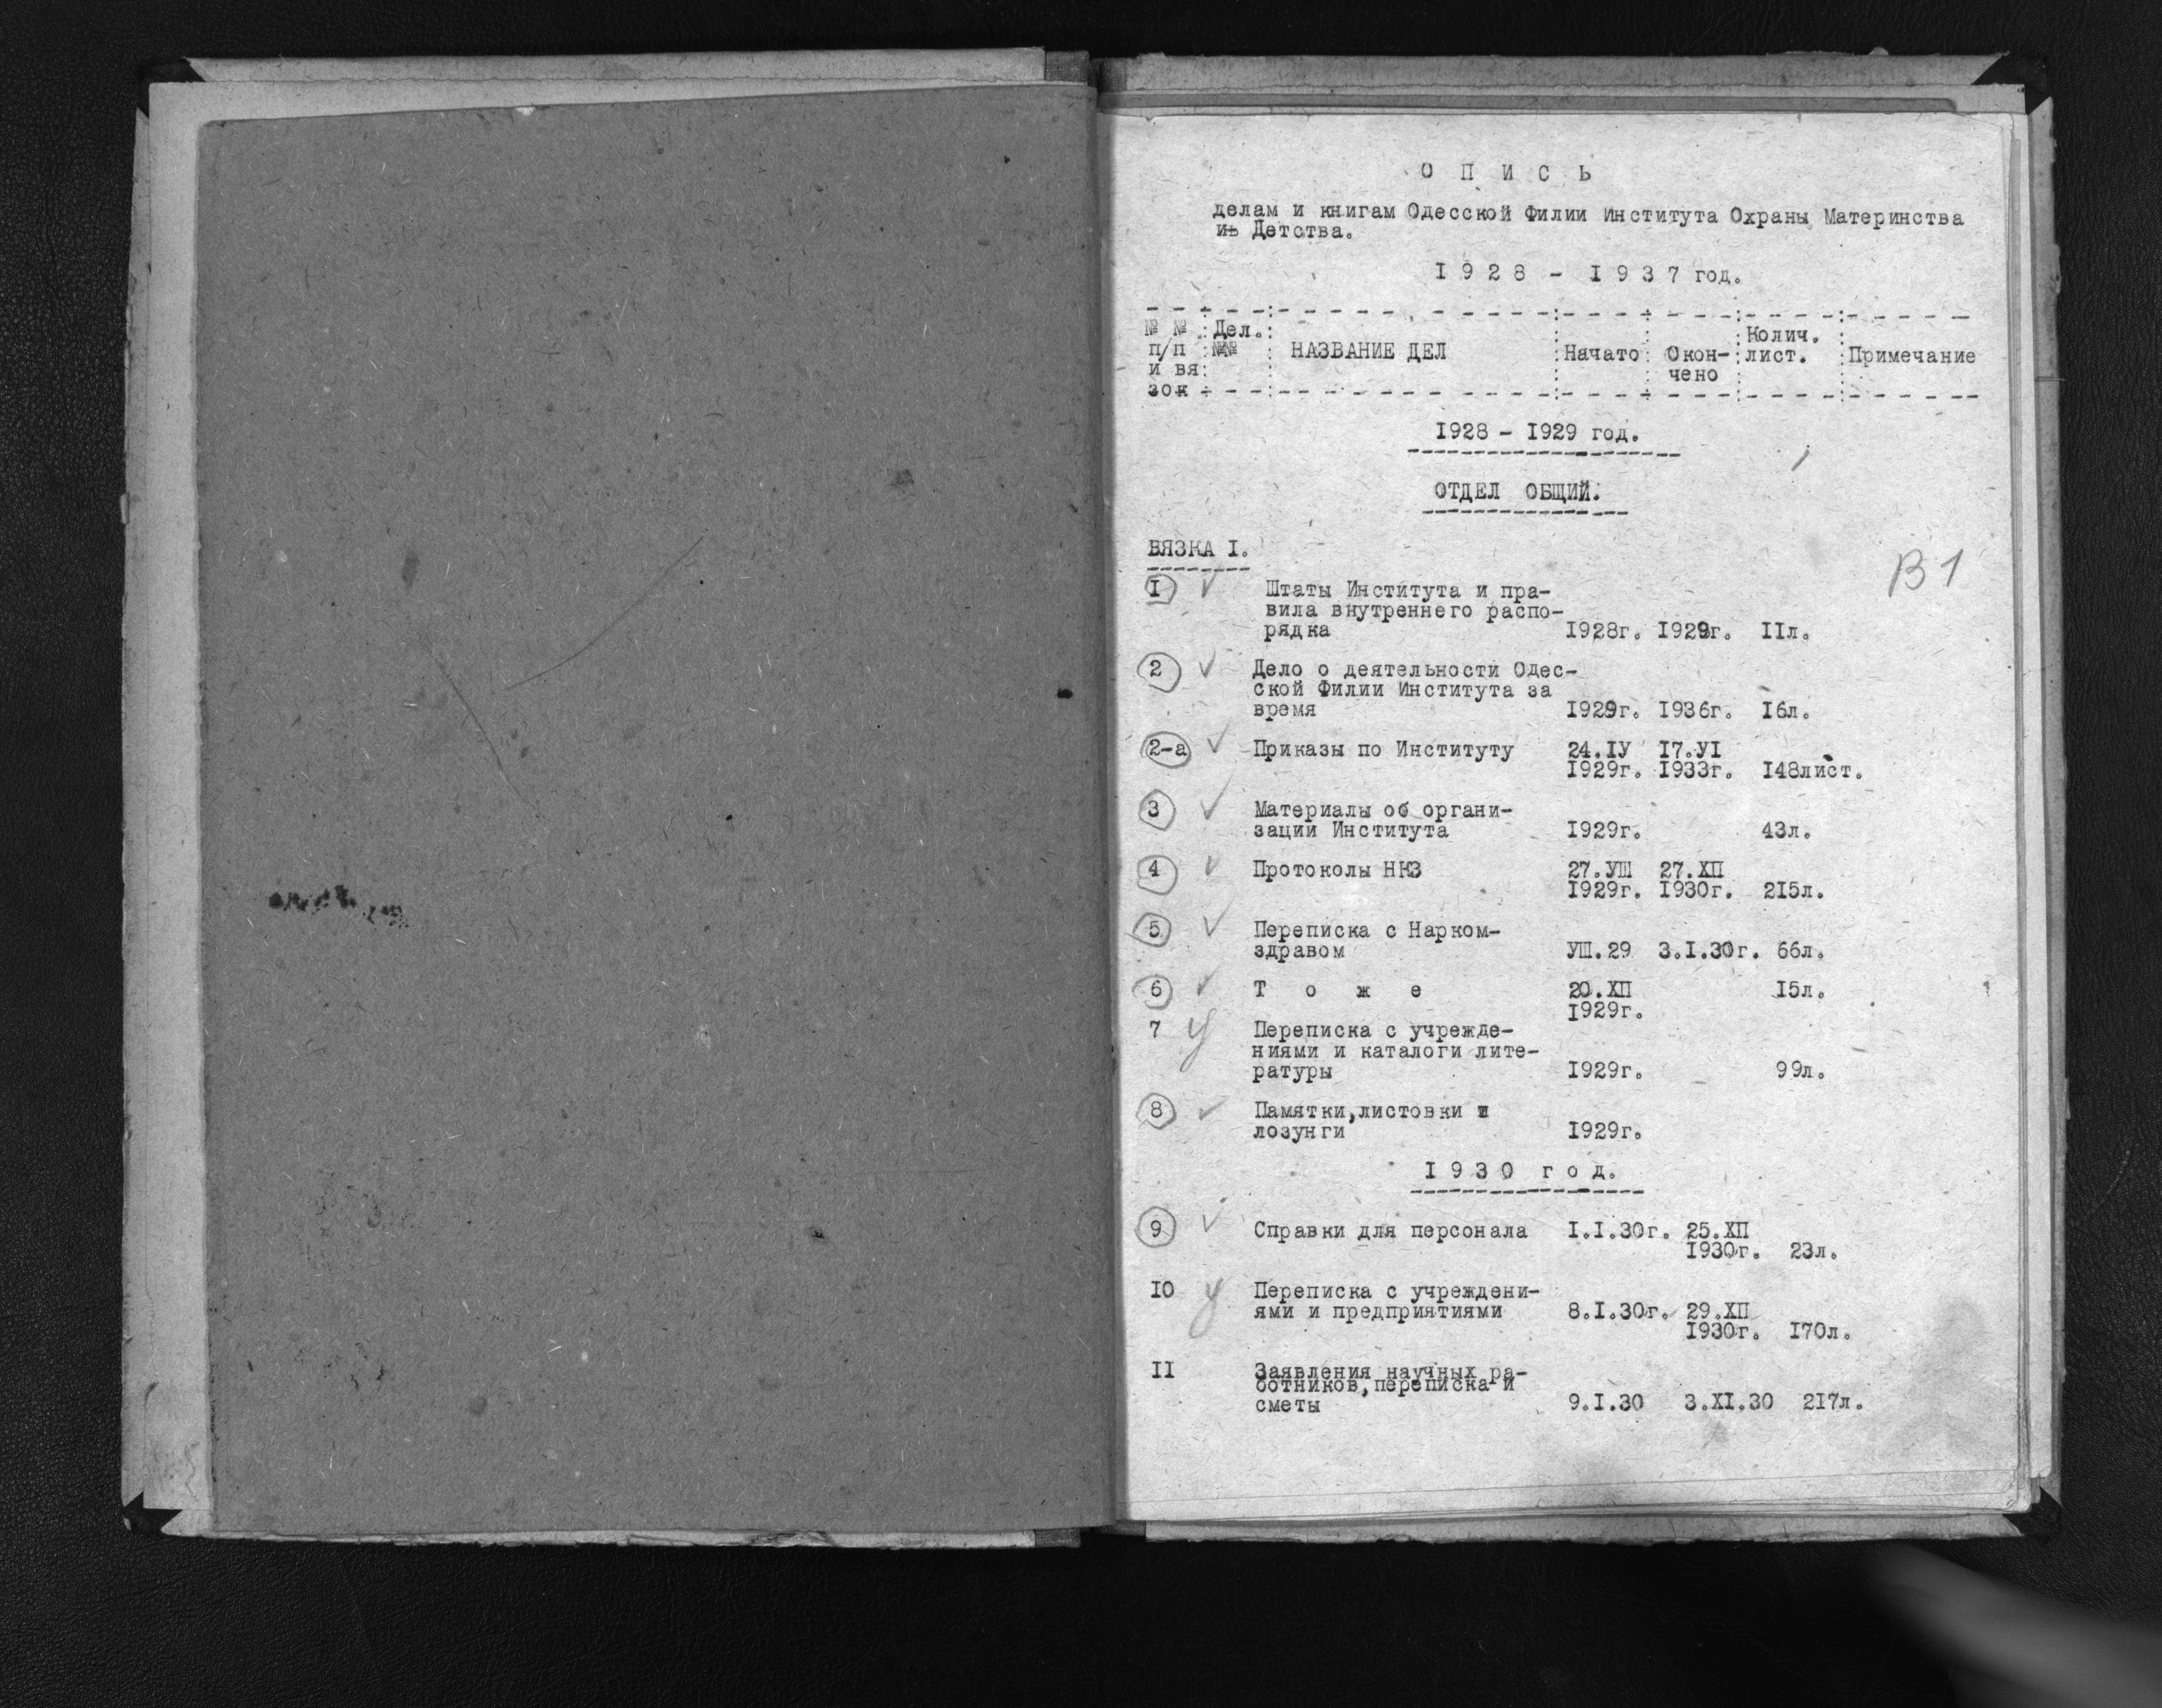 О П И С Ь
делам и книгам Одесской Филии Института Охраны Материнства
и Детства.
I928 - I937 год.
№ № Дел. Колич.
п/п №№ НАЗВАНИЕ ДЕЛ Начато Окон- лист. Примечание
и вя чено
зок
I928 - I929 год.
ОТДЕЛ ОБЩИЙ.
ВЯЗКА I.
В 1
I Штаты Института и пра-
вила внутреннего распо-
рядка I928г. I929г. IIл.
2 Дело о деятельности Одес-
ской Филии Института за
время I929г. I936г. I6л.
2-а Приказы по Институту 24.IУ I7.УI
I929г. I933г. I48лист.
3 Материалы об органи-
зации Института I929г. 43л.
4 Протоколы НКЗ 27.УШ 27.ХП
I929г. I930г. 2I5л.
5 Переписка с Нарком-
здравом УШ.29 3.I.30г. 66л.
6 Т о ж е 20.ХП I5л.
I929г.
7 у Переписка с учрежде-
ниями и каталоги лите-
ратуры I929г. 99л.
8 Памятки,листовки и
лозунги I929г.
I930 год.
9 Справки для персонала I.I.30г. 25.ХП
I930г. 23л.
I0 у Переписка с учреждени-
ями и предприятиями 8.I.30г. 29.ХП
I930г. I70л.
II Заявления научных ра-
ботников,переписка и
сметы 9.I.30 3.XI.30 2I7л.